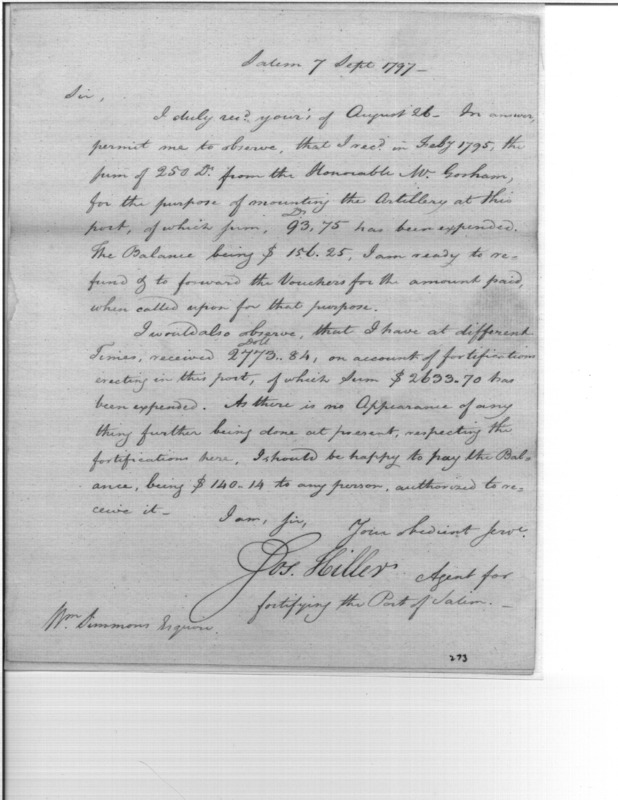 Salem 7 Sept 1797—
Sir,
I duly recd. your's of August 26— In answer,
permit me to observe, that I recd. in Feby 1795, the
sum of 250 Ds. from the Honorable Mr. Gorham,
for the purpose of mounting the Artillery at this
port, of which sum, Ds. 93,75 has been expended.
The Balance being $ 156.25, I am ready to re=
fund & to forward the Vouchers for the amount paid,
when called upon for that purpose.
I would also observe, that I have at different
Times, received Doll 2773..84, on account of fortifications
erecting in this port, of which Sum $ 2633-70 has
been expended. As there is no Appearance of any
thing further being done at present, respecting the
fortifications here, I should be happy to pay the Bal=
ance, being $ 140-14 to any person, authorized to re=
ceive it—
I am, Sir, Your obedient Servt.
Jos. Hiller Agent for
fortifying the Port of Salem.—
Wm. Simmons Esquire
273